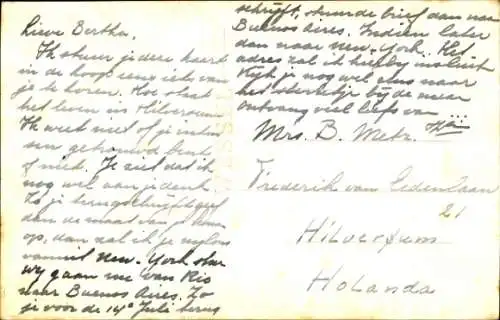 Lieve Bertha,
Ik stuur jedere kaart
in de hoop eens iets van
je te horen. Hoe staat
het leven in Hilversum
Ik weet niet of je intus
sen getrouwd bent
of niet. Je ziet dat ik
nog wel aan je denk.
Zo je terugschrijft geef
dan de maat van je
op, dan zal ik je nylons
vanuit New-York stu
We gaan nu van Rio
naar Buenos Aires. Zo
je voor de 14e Juli terug
schrijft, stuur de brief dan naar
Buenos Aires. Indien later
dan naar New-York. Het
adres zal ik hierbij insluit
Kijk je nog wel eens naar
het sterretje bij de maan
ontvang veel liefs van
Mrs. B. Metz.
Frederik van Eedenlaan
21
Hilversum
Holanda